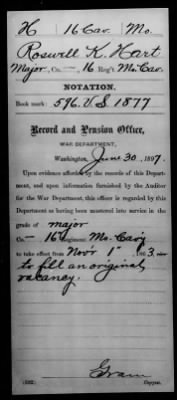 H 16 Cav. Mo.
Roswell K. Hart
Major, Co. —, 16 Reg't Mo. Cav.
NOTATION.
Book mark: 596. V.S. 1877
Record and Pension Office,
WAR DEPARTMENT,
Washington, June 30, 1897.
Upon evidence afforded by the records of this Department, and upon information furnished by the Auditor
for the War Department, this officer is regarded by this
Department as having been mustered into service in the
grade of major
Co. — 16 Regiment Mo. Cav'y
to take effect from Nov'r 1st, 1863,
to fill an original
vacancy.
(522) Copyist.